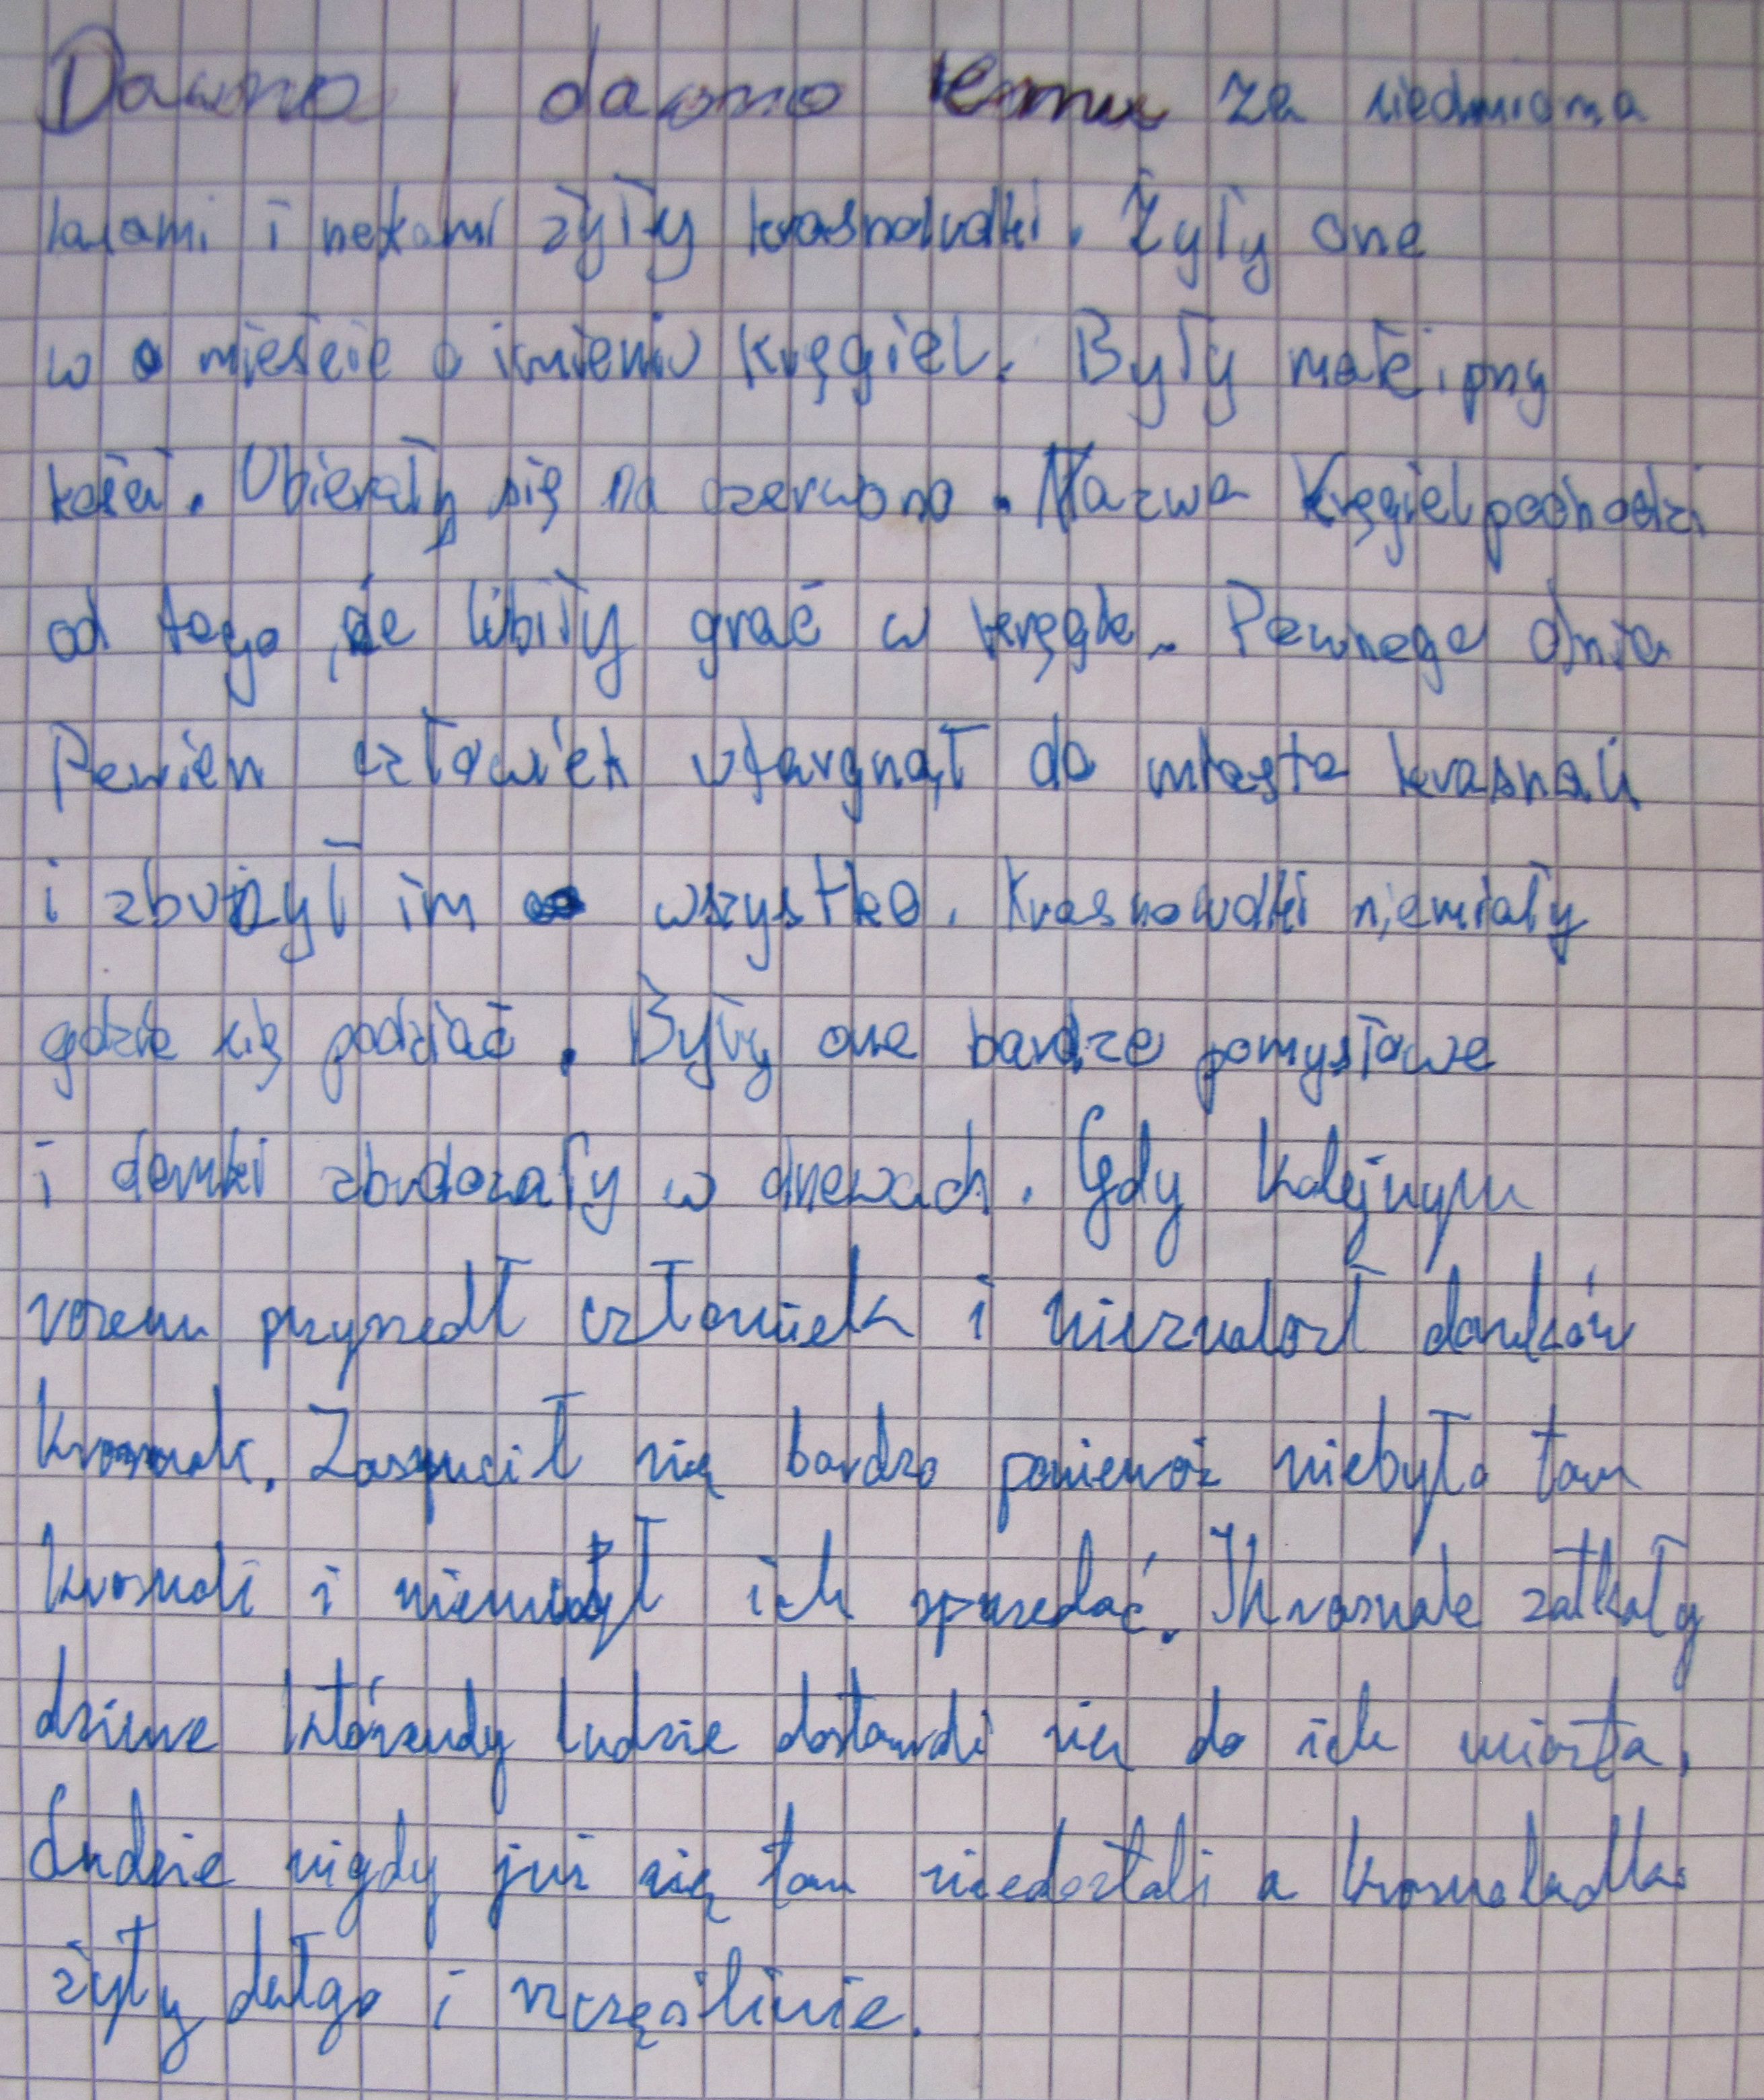 Dawno, dawno temu za siedmioma
lasami i rzekami żyły krasnoludki. Żyły one
w mieście o imieniu Kręgiel. Były małe i przy
kości. Ubierały się na czerwono. Nazwa Kręgiel pochodzi
od tego, że lubiły grać w kręgle. Pewnego dnia
Pewien człowiek wtargnął do miasta krasnali
i zbużył im wszystko. Krasnowdki niemiały
gdzie się podziać. Były one bardzo pomysłowe
i domki zbudowały w drzewach. Gdy kolejnym
razem przyszedł człowiek i nieznalazł domków
krasnali. Zasmucił się bardzo ponieważ niebyło tam
krasnali i niemógł ich sprzedać. Krasnale zatkały
dziure którendy ludzie dostawali się do ich miasta.
Ludzie nigdy już się tam niedostali a krasnoludki
żyły dałgo i szczęśliwie.